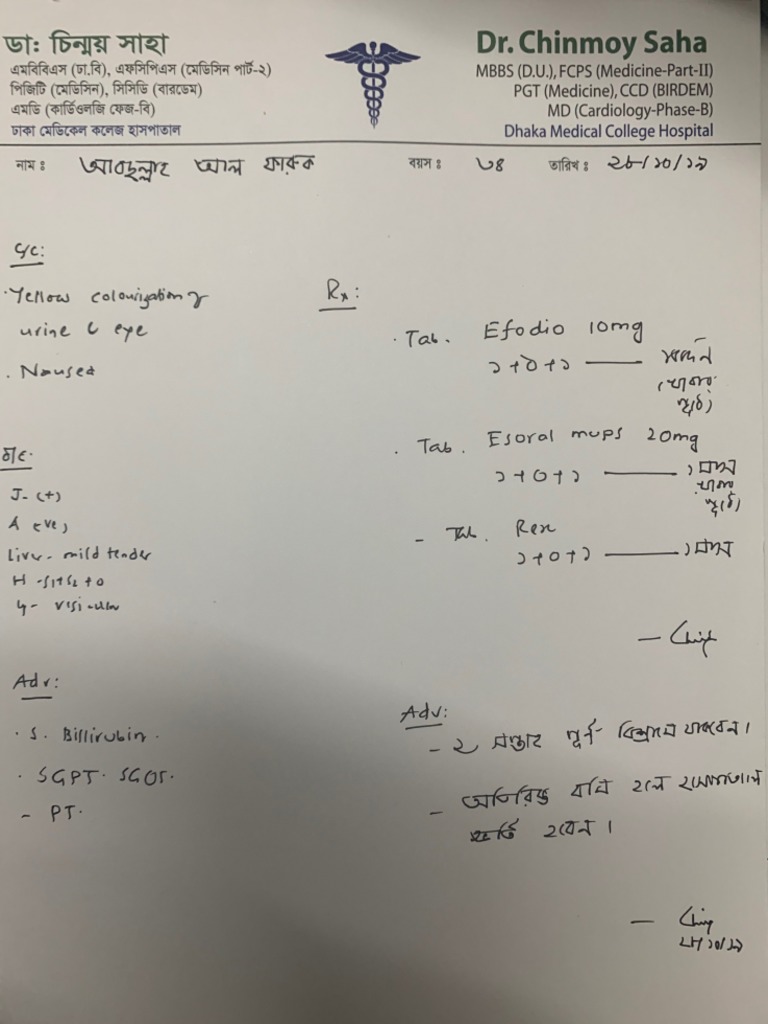 ডাঃ চিন্ময় সাহা
এমবিবিএস (ঢা.বি), এফসিপিএস (মেডিসিন পার্ট-২)
পিজিটি (মেডিসিন), সিসিডি (বারডেম)
এমডি (কার্ডিওলজি ফেজ-বি)
ঢাকা মেডিকেল কলেজ হাসপাতাল
Dr. Chinmoy Saha
MBBS (D.U.), FCPS (Medicine-Part-II)
PGT (Medicine), CCD (BIRDEM)
MD (Cardiology-Phase-B)
Dhaka Medical College Hospital
নাম ঃ আবদুল্লাহ আল ফারুক বয়সঃ ৩৪ তারিখ ঃ ২৮/১০/১৯
C/C:
· Yellow colourization of
urine & eye
· Nausea
O/E.
J- (+)
A (-ve)
Liver - mild tender
H - S1+S2+0
Adv:
· S. Billirubin.
· SGPT. SGOT.
- PT.
Rx:
· Tab. Efodio 10mg
১+০+১ ——
(খাবার
পূর্বে)
· Tab. Esoral mups 20mg
১+০+১ —— ১মাস
খাবার
পূর্বে)
- Tab. Rex
১+০+১ —— ১মাস
Adv:
- ২ সপ্তাহ পূর্ণ বিশ্রামে থাকবেন।
- অতিরিক্ত বমি হলে হাসপাতালে
ভর্তি হবেন।
২৮/১০/১৯